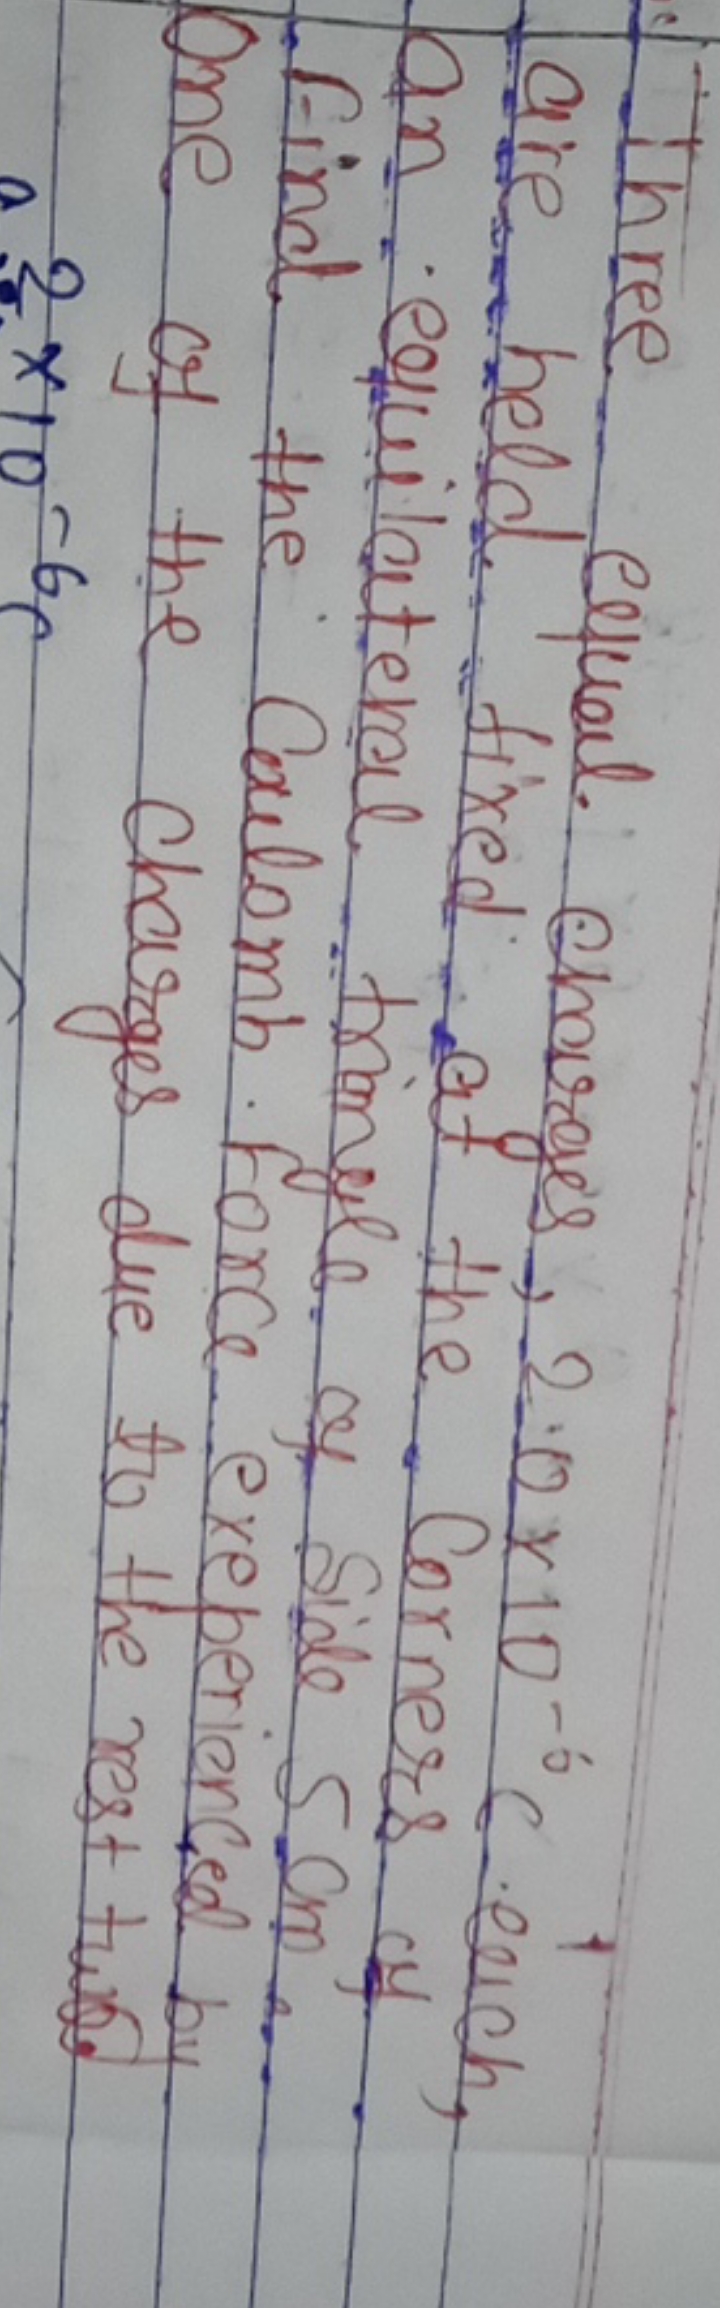 Three equal charges, 2.0 x 10⁻⁶ C each,
are held fixed at the Corners of
an equilateral triangle of Side 5 Cm.
Find the Coulomb Force experienced by
One of the Charges due to the rest two.
2 x 10⁻⁶ C